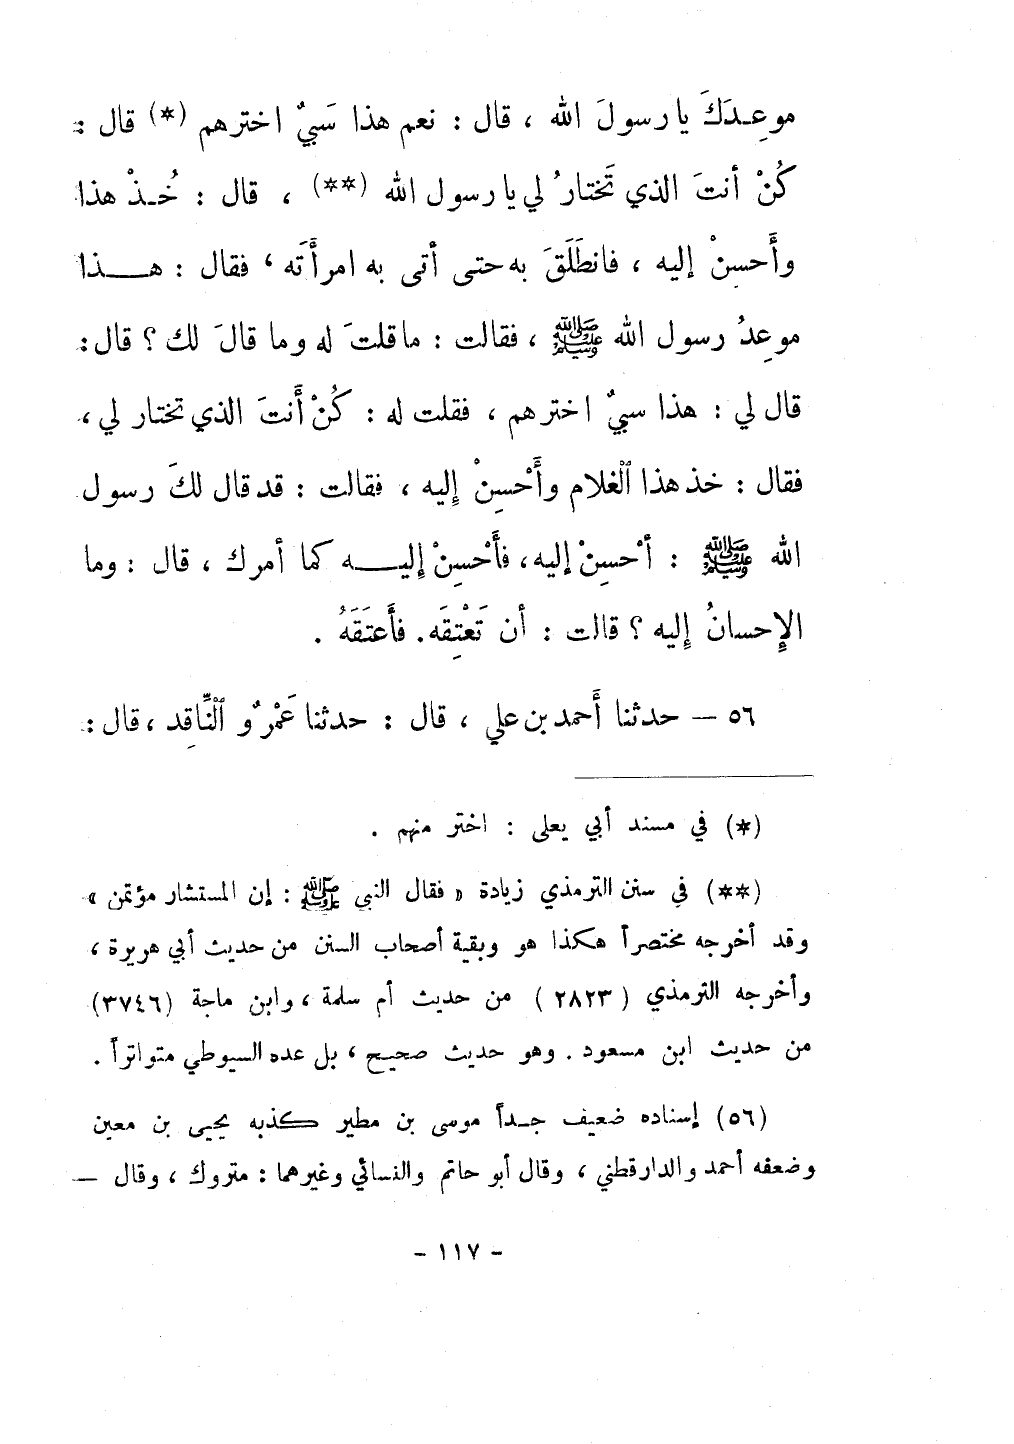 موعِدَكَ يا رسولَ الله ، قال : نعم هذا سَبيٌ اخترهم (*) قال :
كُنْ أنتَ الذي تَختارُ لي يا رسول الله (**) ، قال : خُذْ هذا
وأَحسِنْ إليه ، فانطَلَقَ به حتى أتى به امرأَتَه ، فقال : هذا
موعِدُ رسول الله ﷺ ، فقالت : ما قلتَ له وما قالَ لك ؟ قال :
قال لي : هذا سبيٌ اخترهم ، فقلت له : كُنْ أَنتَ الذي تختار لي ،
فقال : خذ هذا الْغلام وأَحْسِنْ إِليه ، فقالت : قد قال لكَ رسول
الله ﷺ : أحْسِنْ إليه، فأَحْسِنْ إِليه كما أمرك ، قال : وما
الإِحسانُ إِليه ؟ قالت : أن تَعْتِقَه. فأَعتَقَهُ .
٥٦ — حدثنا أَحمد بن علي ، قال : حدثنا عَمْرٌو الْنَّاقِد ، قال :
(*) في مسند أبي يعلى : اختر منهم .
(**) في سنن الترمذي زيادة « فقال النبي ﷺ : إن المستشار مؤتمن »
وقد أخرجه مختصراً هكذا هو وبقية أصحاب السنن من حديث أبي هريرة ،
وأخرجه الترمذي ( ٢٨٢٣ ) من حديث أم سلمة ، وابن ماجة (٣٧٤٦)
من حديث ابن مسعود . وهو حديث صحيح ، بل عده السيوطي متواتراً .
(٥٦) إسناده ضعيف جداً موسى بن مطير كذبه يحيى بن معين
وضعفه أحمد والدارقطني ، وقال أبو حاتم والنسائي وغيرهما : متروك ، وقال —
- ١١٧ -